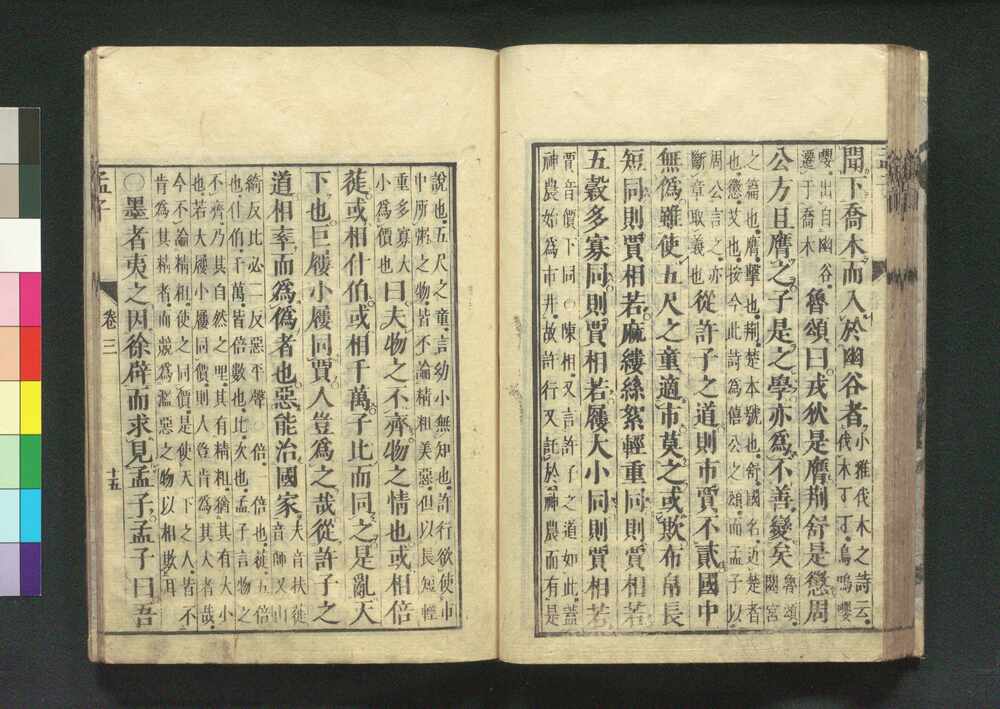 聞下喬木而入於幽谷者
小雅伐木之詩云
伐木丁丁鳥鳴嚶
嚶出自幽谷
遷于喬木
魯頌曰戎狄是膺荊舒是懲周
公方且膺之子是之學亦為不善變矣
魯頌
閟宮
之篇也膺擊也荊楚本號也舒國名近楚者
也懲艾也按今此詩為僖公之頌而孟子以
周公言之亦
斷章取義也
從許子之道則市賈不貳國中
無偽雖使五尺之童適市莫之或欺布帛長
短同則賈相若麻縷絲絮輕重同則賈相若
五穀多寡同則賈相若屨大小同則賈相若
賈音價下同○陳相又言許子之道如此蓋
神農始為市井故許行又託於神農而有是
說也五尺之童言幼小無知也許行欲使市
中所粥之物皆不論精粗美惡但以長短輕
重多寡大
小為價也
曰夫物之不齊物之情也或相倍
蓰或相什伯或相千萬子比而同之是亂天
下也巨屨小屨同賈人豈為之哉從許子之
道相率而為偽者也惡能治國家
夫音扶蓰
音師又山
綺反比必二反惡平聲○倍一倍也蓰五倍
也什伯千萬皆倍數也比次也孟子言物之
不齊乃其自然之理其有精粗猶其有大小
也若大屨小屨同價則人豈肯為其大者哉
今不論精粗使之同價是使天下之人皆不
肯為其精者而競為濫惡之物以相欺耳
○墨者夷之因徐辟而求見孟子孟子曰吾
孟子
卷三
十五